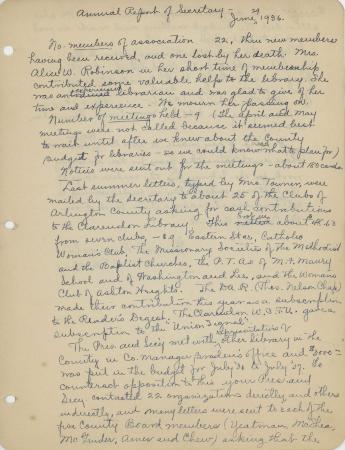 Annual Report of Secretary -
June, 29 1936.
No. members of association 22, Three new members
having been received, and one lost by her death. Mrs.
Alice W. Robinson in her short time of membership
contributed some valuable help to the library. She
was experienced librarian and was glad to give of her
time and experience - We mourn her passing on.
Number of meetings held - 9 (The April and May
meetings were not called because it seemed best
to wait until after we knew about the County
Budget for libraries - so we could know what to plan for)
Notices were sent out for the meetings - about 180 cards.
Last summer letters, typed by Mrs. Towner, were
mailed by the secretary to about 25 of the Clubs of
Arlington County asking for cash contributions
to the Clarendon Library. This netted about
from seven clubs, - Eastern Star, Catholic
Woman's Club, The Missionary Societies of the Methodist
and the Baptist Churches, the P.T.As of M.F. Maury
School and of Washington and Lee, and the Woman's
Club of Ashton Heights. The D.A.R. (Thos. Nelson Chap)
made their contribution this year as a subscription
to the Reader's Digest. The Clarendon W.C.T.U. gave a
subscription to the "Union Signal".
representatives of
The Pres. and Secy met with other library in the
County in Co. Manager office and $3000
was put in the budget for July '36 to July '37. To
counteract opposition to this your Pres. and
Secy contacted 22 organizations directly and others
indirectly, and many letters were sent to each of the
five County Board members (Yeatman, McShea,
McGruder, Ames and Chew) asking that the